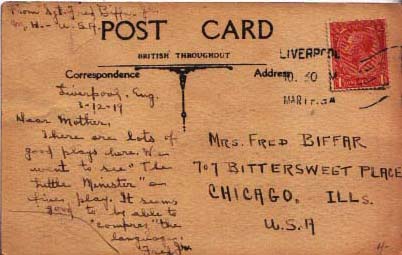 From Sgt. Fred Biffar Jr.
U.S.A.
POST CARD
BRITISH THROUGHOUT
Correspondence
Address
LIVERPOOL
10.30
MAR
Liverpool, Eng.
3-12-19
Dear Mother,
There are lots of
good plays here. We
went to see "The
Little Minister" a
fine play. It seems
good to be able to
"compree" the
language.
Fred Jr.
MRS. FRED BIFFAR
707 BITTERSWEET PLACE
CHICAGO, ILLS.
U.S.A